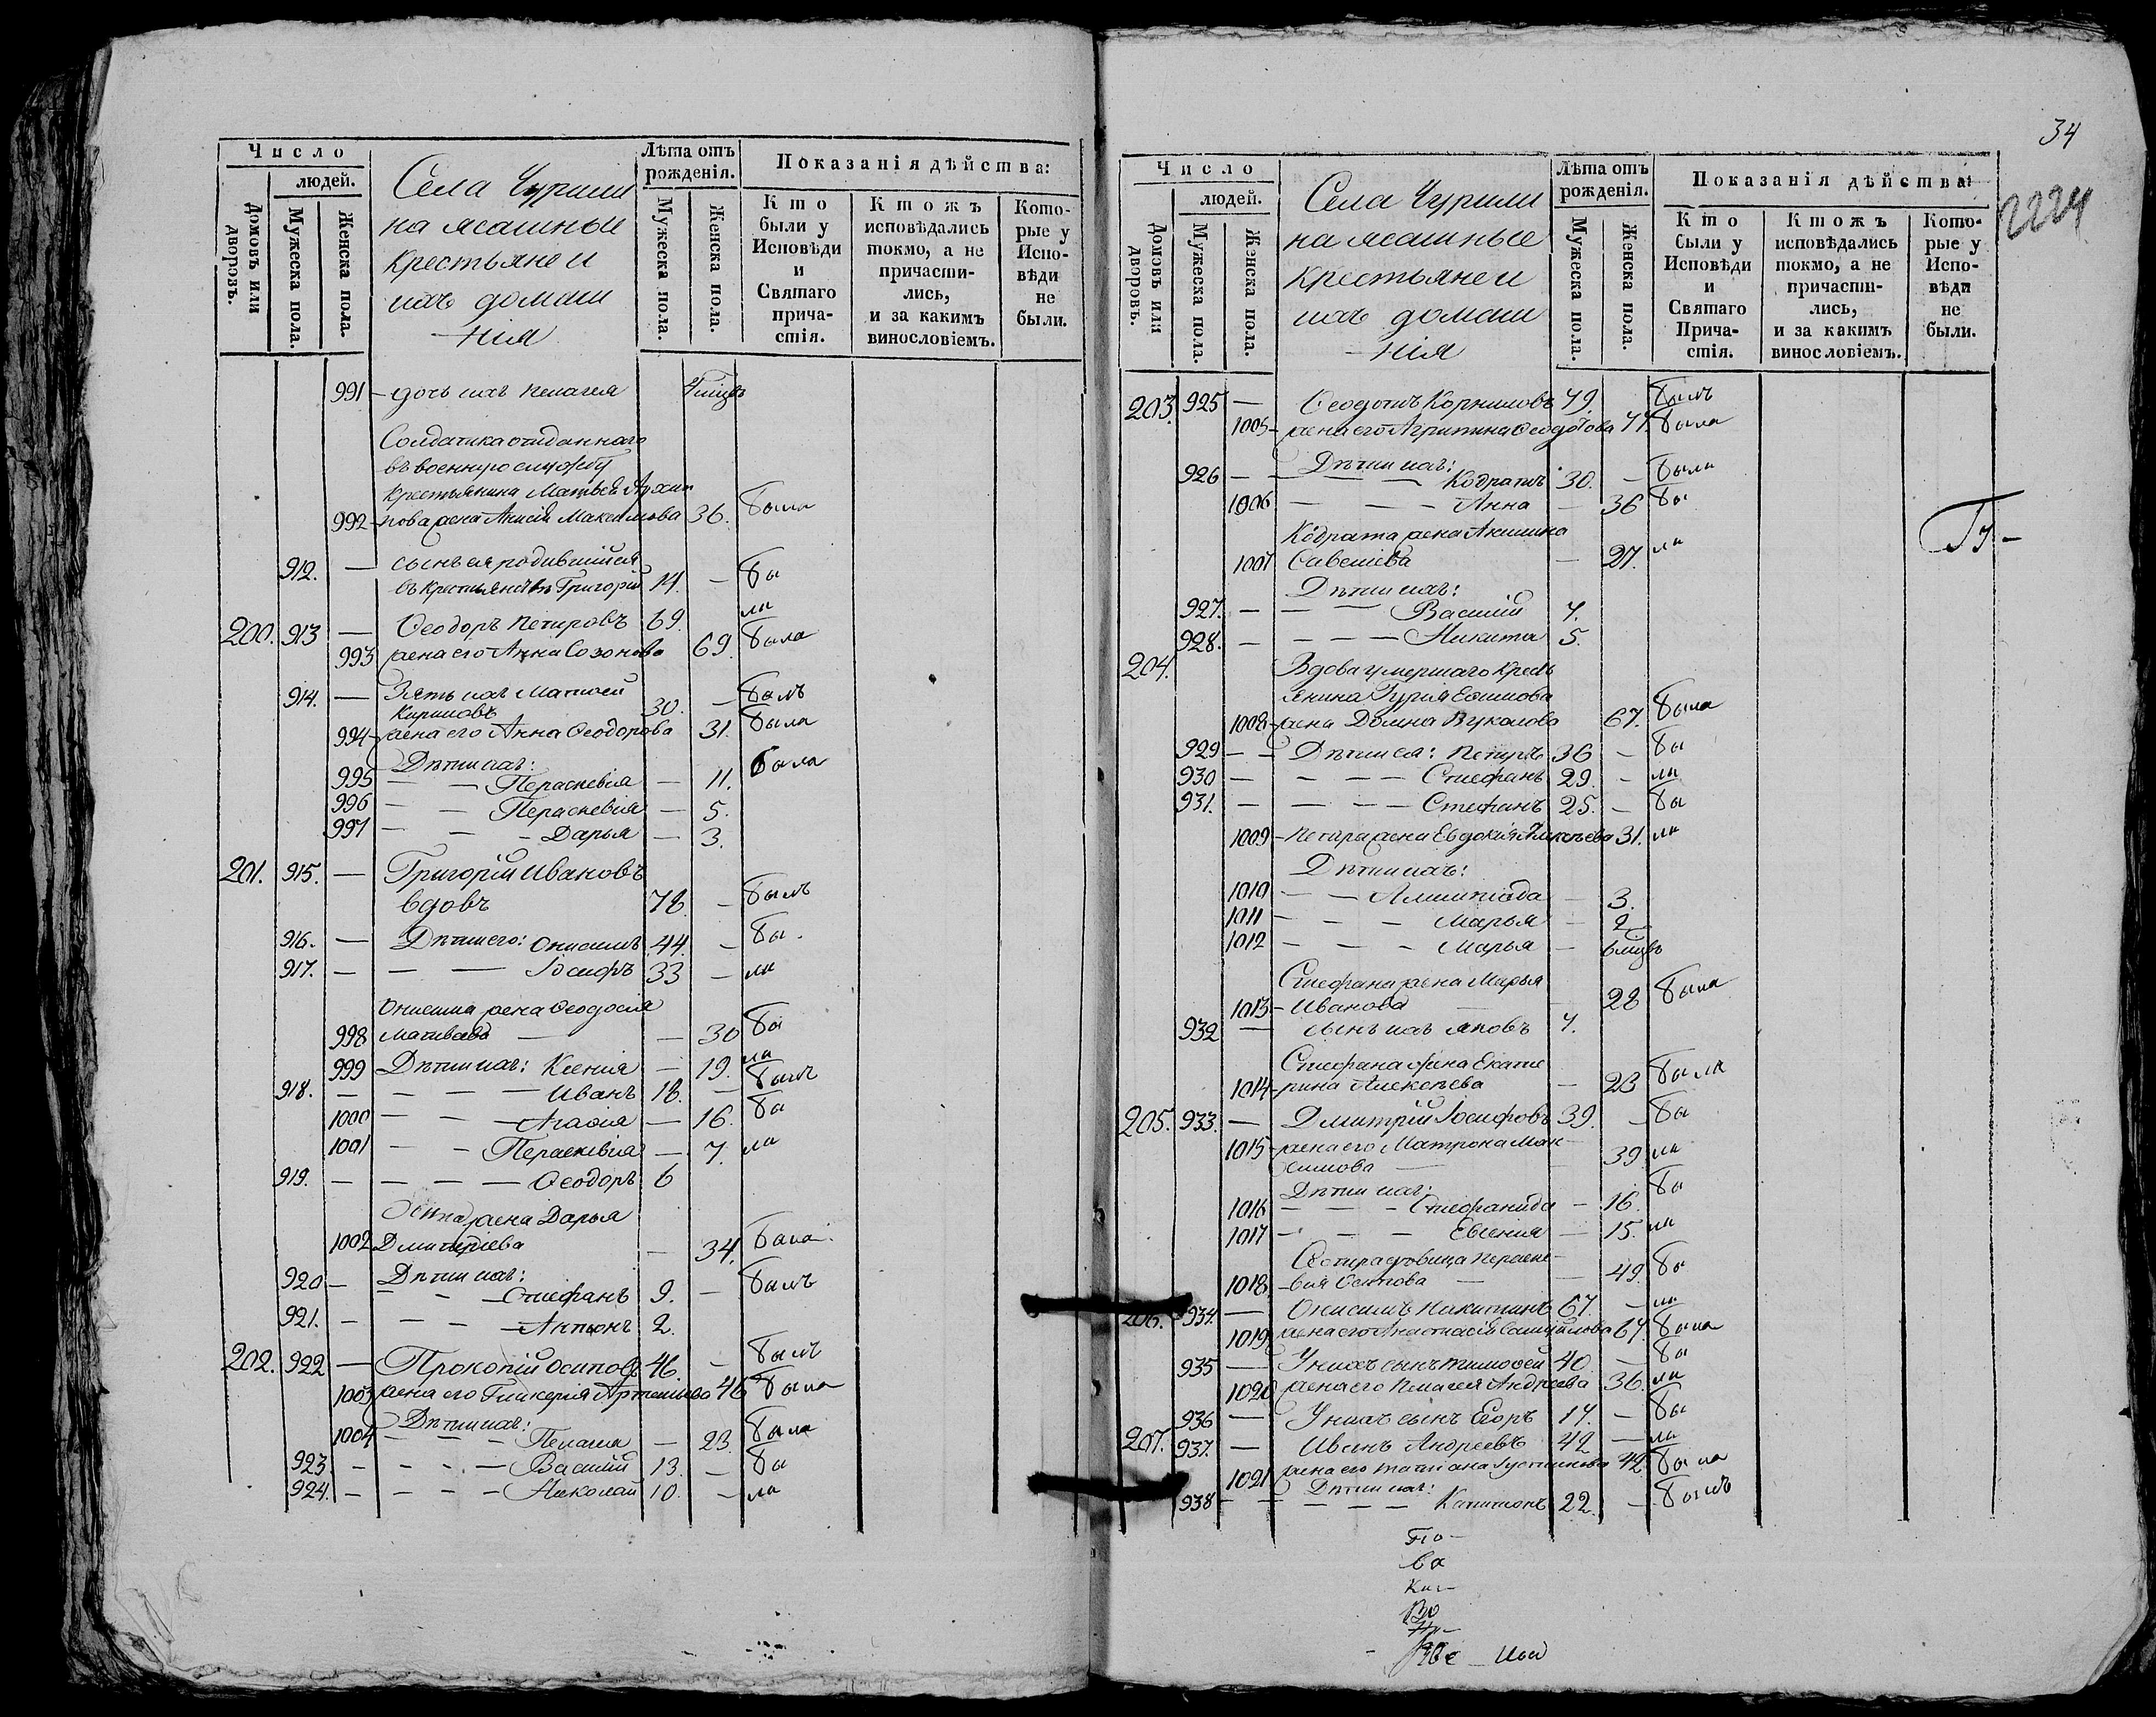 Число
людей.
Домовъ или дворовъ.
Мужеска пола.
Женска пола.
Села Чурили
на ясашные
крестьяне и
ихъ домаш
-нія
Лѣта отъ рожденія.
Мужеска пола.
Женска пола.
Показанія дѣйства:
Кто были у Исповѣди и Святаго причастія.
Ктожъ исповѣдались токмо, а не причастились, и за какимъ винословіемъ.
Которые у Исповѣди не были.
991 – дочь ихъ Пелагея
Солдатка отданнаго
въ военную службу
крестьянина Матвея Архи
992 – пова жена Анисія Максимова 36. была
912. — сынъ ея родившійся
въ крестьянствѣ Григорій 14. – бы
ли
200. 913 — Ѳеодоръ Петровъ 69.
993 жена его Анна Созонова 69. была
914. — Зять ихъ Матвей
Кириловъ 30. – былъ
994 – жена его Анна Ѳеодорова 31. была
Дѣти ихъ:
995 — — Перасковія — 11. была
996 — — Перасковія — 5.
997 — — Дарья — 3.
201. 915. — Григорій Ивановъ
вдовъ 78. – былъ
916. — Дѣти его: Онисимъ 44. – бы
917. — — — Іосифъ 33 – ли
Онисима жена Ѳеодосія
998 Матвеева — — 30 бы
999 Дѣти ихъ: Ксенія — 19. ли
918. — — — Иванъ 18. – былъ
1000 — — Агафія — 16. бы
1001 — — Перасковія — 7. ли
919. — — — — Ѳеодоръ 6
Осипа жена Дарья
1002 Дмитріева — 34. была
920 — Дѣти ихъ:
— — Стефанъ 9. — былъ
921. — — — — Антонъ 2.
202. 922 — Прокопій Осиповъ 46. – былъ
1003 жена его Гликерія Артемьева 46 была
Дѣти ихъ:
1004 — — — Пелагия — 23. была
923. — — — — Василій 13. — бы
924. — — — — Николай 10. — ли
34
2224
Число
людей.
Домовъ или дворовъ.
Мужеска пола.
Женска пола.
Села Чурили
на ясашные
крестьяне и
ихъ домаш
-нія
Лѣта отъ рожденія.
Мужеска пола.
Женска пола.
Показанія дѣйства:
Кто были у Исповѣди и Святаго Причастія.
Ктожъ исповѣдались токмо, а не причастились, и за какимъ винословіемъ.
Которые у Исповѣди не были.
203. 925 — Ѳеодотъ Корниловъ 49. былъ
1005 – жена его Агрипина Ѳеодотова была
Дѣти ихъ:
926 — — — Кодратъ 30. – были
1006 — — — Анна — 36 бы
Кодрата жена Акилина
1007 Савельева — 27. ли
Дѣти ихъ:
927. — — — Василій
928. — — — — Никита 5.
204. Вдова умершаго кресть
янина Гурія Ефимова
1008 – жена Домна Вуколова 67. была
929 — — Дѣти ея: Петръ 36 – бы
930 — — — — Стефанъ 29. – ли
931. — — — — Стефанъ 25. – бы
1009 – Петра жена Евдокія Алексѣева 31. ли
Дѣти ихъ:
1010 — — Алимпіада — 3.
1011 — — — Марья — 2
1012 — — — Марья — 6 мцвъ
Стефана жена Марья
1013 – Иванова — 28 была
932 — сынъ ихъ Яковъ
Стефана жена Екате
1014 – рина Алексѣева — 23 была
205. 933. — Дмитрій Іосифовъ 39. – бы
1015 – жена его Матрона Мак-
симова — 39. ли
Дѣти ихъ:
бы
1016 — — — Стефанида — 16.
1017 — — — Евгенія — 15. ли
Сестра дѣвица Пераске-
1018. – вия Осипова — — 49. бы
206. 934. — Онисимъ Никитинъ 67. – ли
1019 жена его Анастасія Самуйлова 67. была
935 — У нихъ сынъ Тимофей 40 – бы
1020 жена его Пелагея Андреева 36. ли
936 — У нихъ сынъ Егоръ 17. – бы
207. 937. — Иванъ Андреевъ 42 — ли
1021 жена его Татіана Густинова 42 была
Дѣти ихъ:
938 — — — — — Капитонъ 22. – былъ